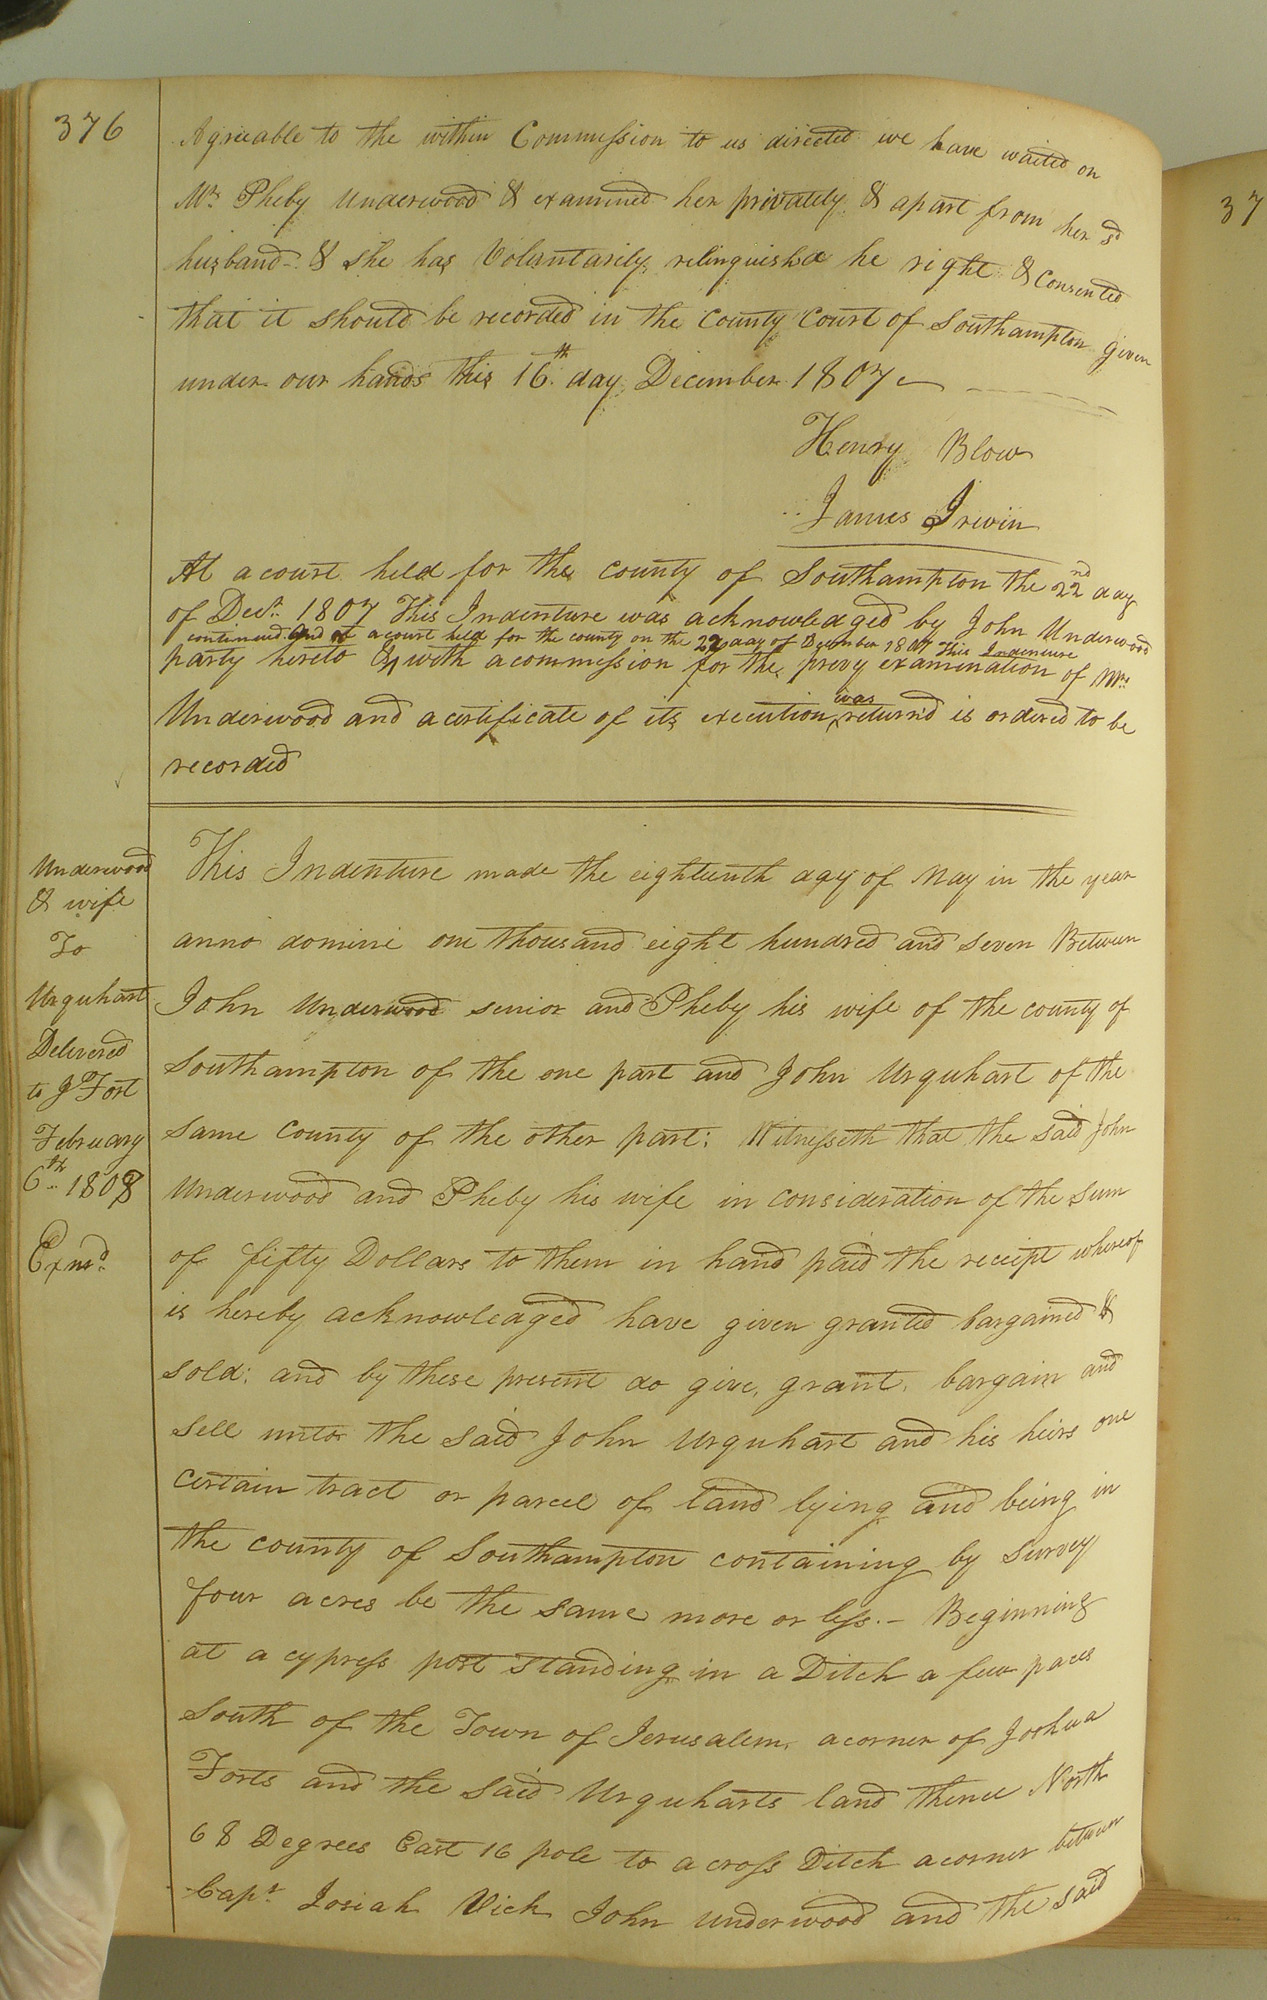 376
Agreeable to the within Commission to us directed we have waited on
Mrs Pheby Underwood & examined her privately & apart from her sd
husband & she has Voluntarily relinquishd he right & consented
that it should be recorded in the County Court of Southampton given
under our hands this 16th day December 1807
Henry Blow
James Irwin
At a court held for the county of Southampton the 22nd day
of Decr 1807 This Indenture was acknowledged by John Underwood
continued and at a court held for the county on the 22 day of December 1807 This Indenture
party hereto & with a commission for the privy examination of Mrs
was
Underwood and a certificate of its execution ^ return'd is ordered to be
recorded
Underwood
& wife
To
Urquhart
Delivered
to J Fort
February
6th 1808
Exmd
This Indenture made the eighteenth day of May in the year
anno domini one thousand eight hundred and seven Between
John Underwood senior and Pheby his wife of the county of
Southampton of the one part and John Urquhart of the
same county of the other part: Witnesseth that the said John
Underwood and Pheby his wife in consideration of the sum
of fifty Dollars to them in hand paid the receipt whereof
is hereby acknowledged have given granted bargained &
sold: and by these present do give, grant, bargain and
sell unto the said John Urquhart and his heirs one
certain tract or parcel of land lying and being in
the county of Southampton containing by survey
four acres be the same more or less.- Beginning
at a cypress post standing in a Ditch a few paces
South of the Town of Jerusalem, a corner of Joshua
Forts and the said Urquharts land thence North
68 Degrees East 16 pole to a cross Ditch a corner between
Capt Josiah Vick John Underwood and the said
37